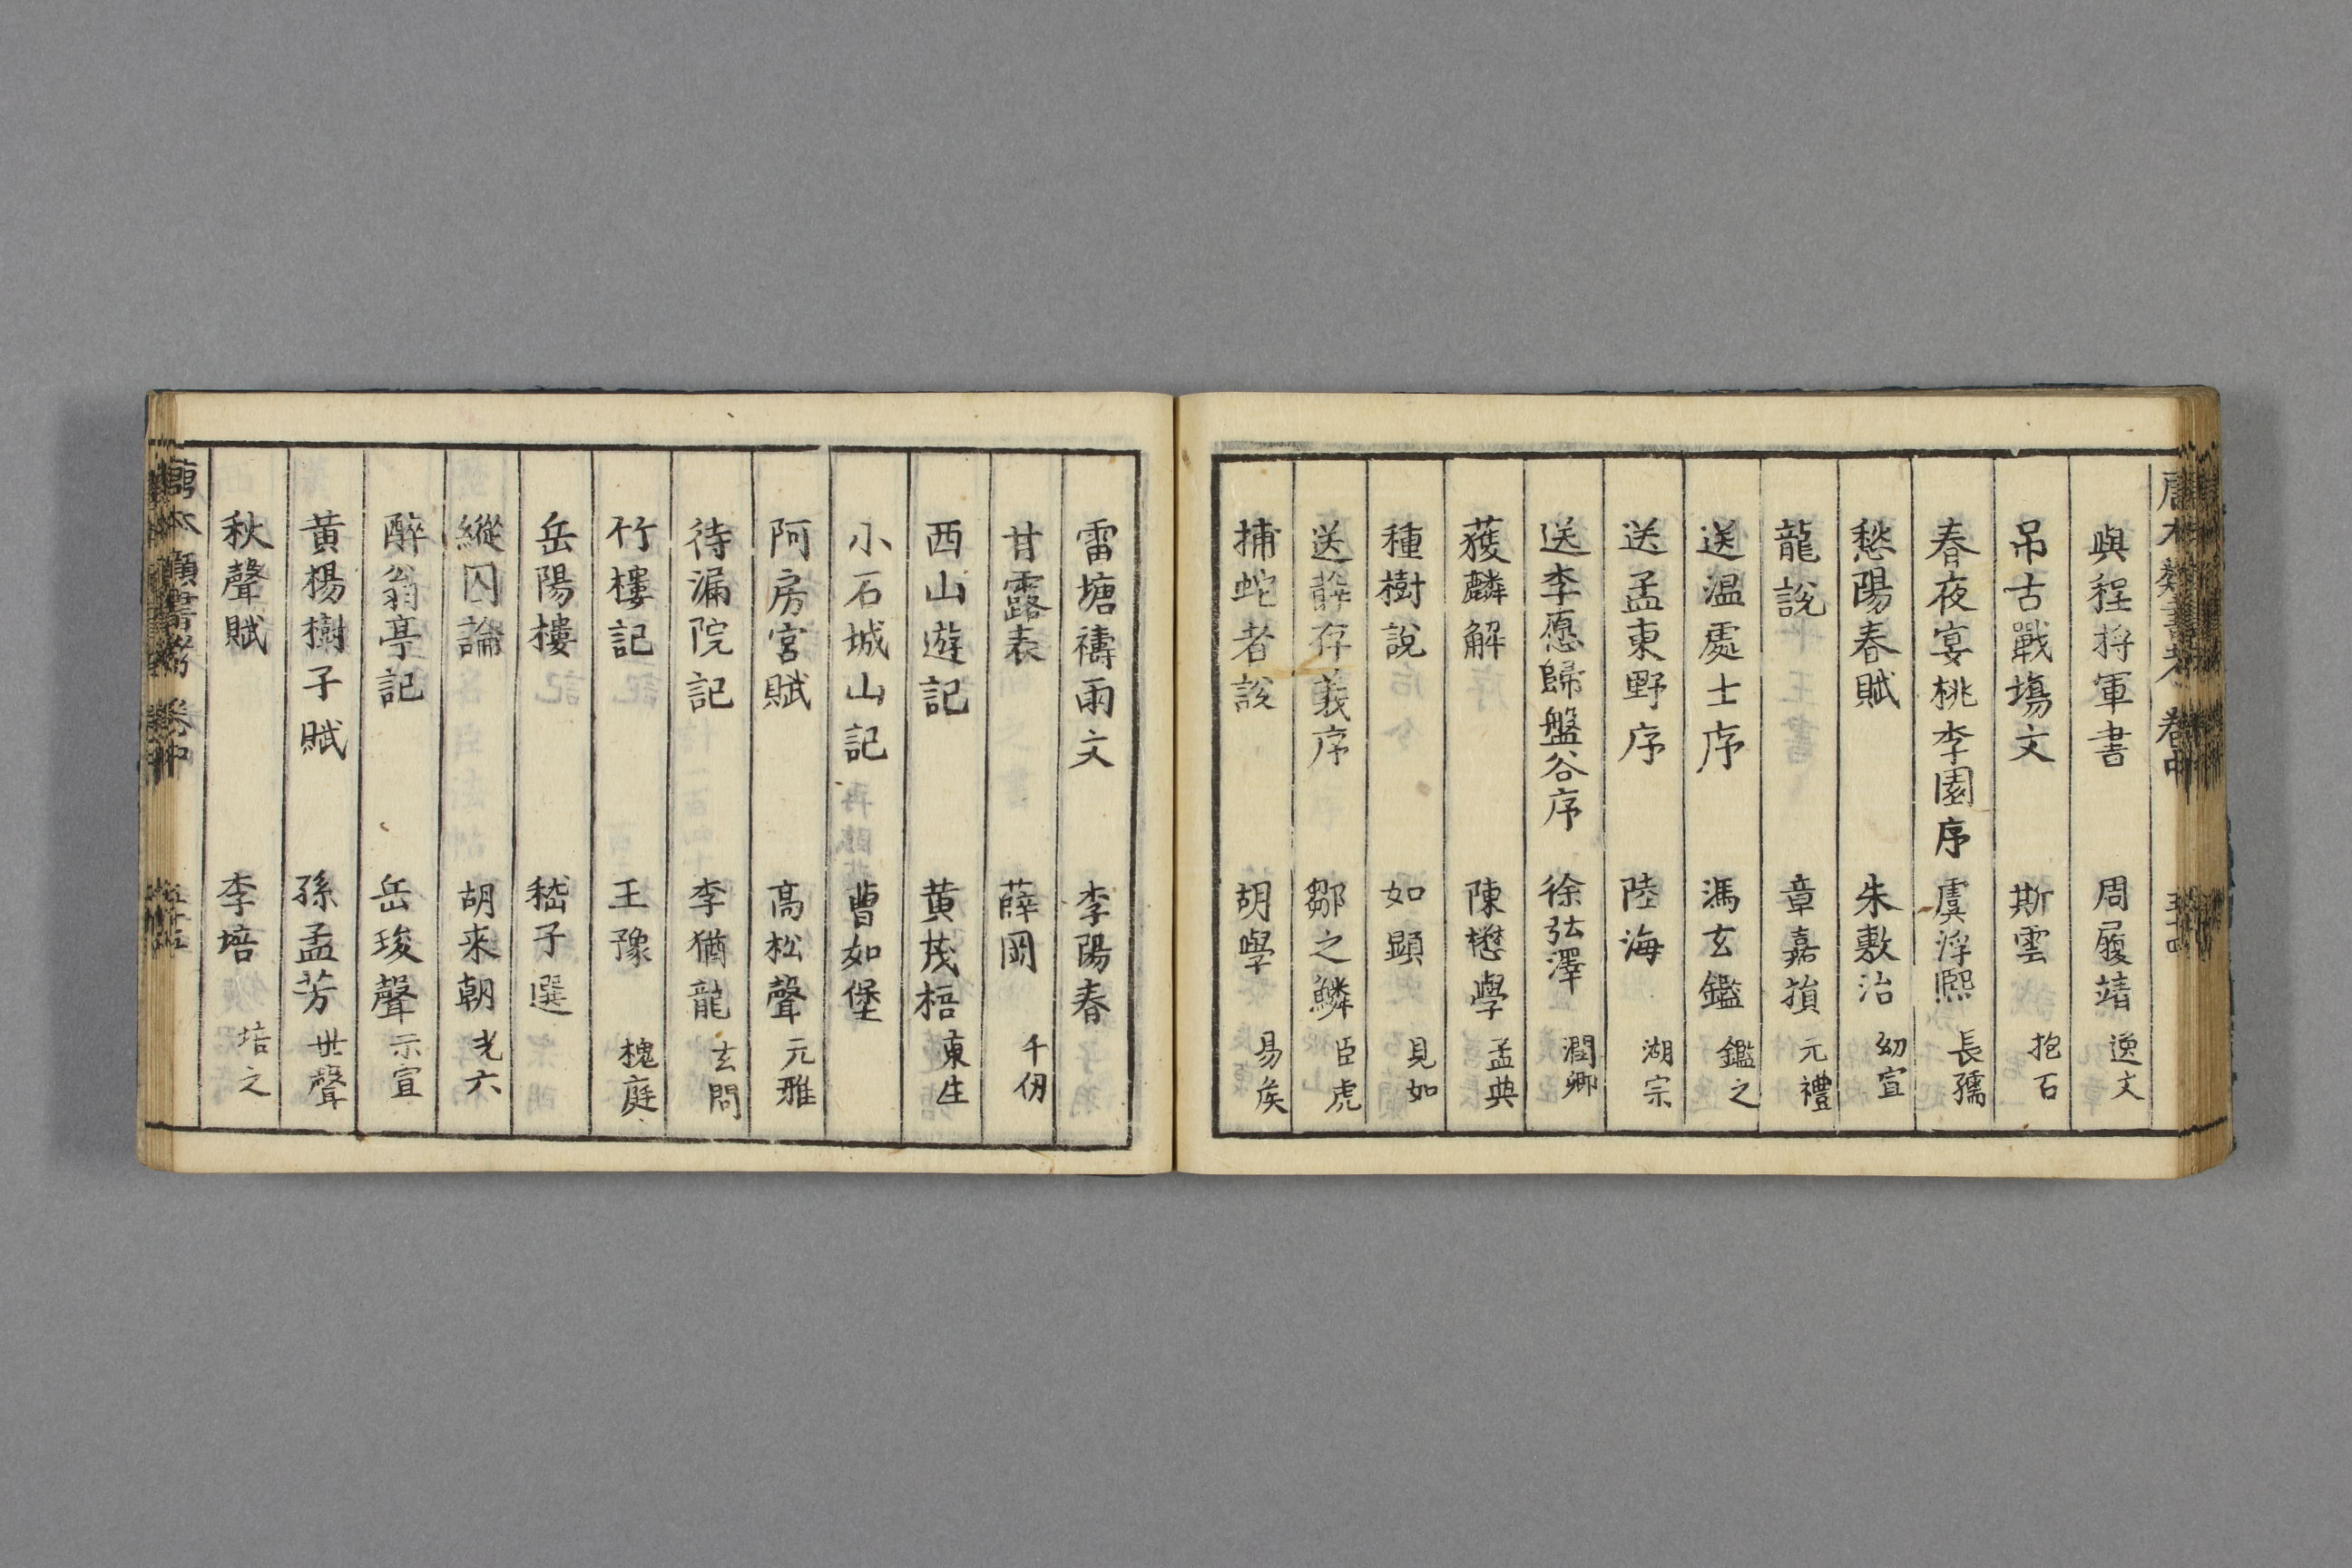 與程將軍書 周履靖 逸文
吊古戰塲文 斯雲 抱石
春夜宴桃李園序 虞淳熙 長孺
愁陽春賦 朱敷治 幼宣
龍說 章嘉損 元禮
送溫處士序 馮玄鑑 鑑之
送孟東野序 陸海 湖宗
送李愿歸盤谷序 徐弘澤 潤卿
獲麟解 陳懋學 孟典
種樹說 如顯 見如
送薛存義序 鄒之鱗 臣虎
捕蛇者說 胡學 易矦
雷塘禱雨文 李陽春
甘露表 薛岡 千仞
西山遊記 黃茂梧 東生
小石城山記 曹如堡
阿房宮賦 高松聲 元雅
待漏院記 李猶龍 玄問
竹樓記 王豫 槐庭
岳陽樓 嵇子選
縱囚論 胡来朝 光六
醉翁亭記 岳琰聲 示宣
黃楊樹子賦 孫孟芳 世聲
秋聲賦 李培 培之